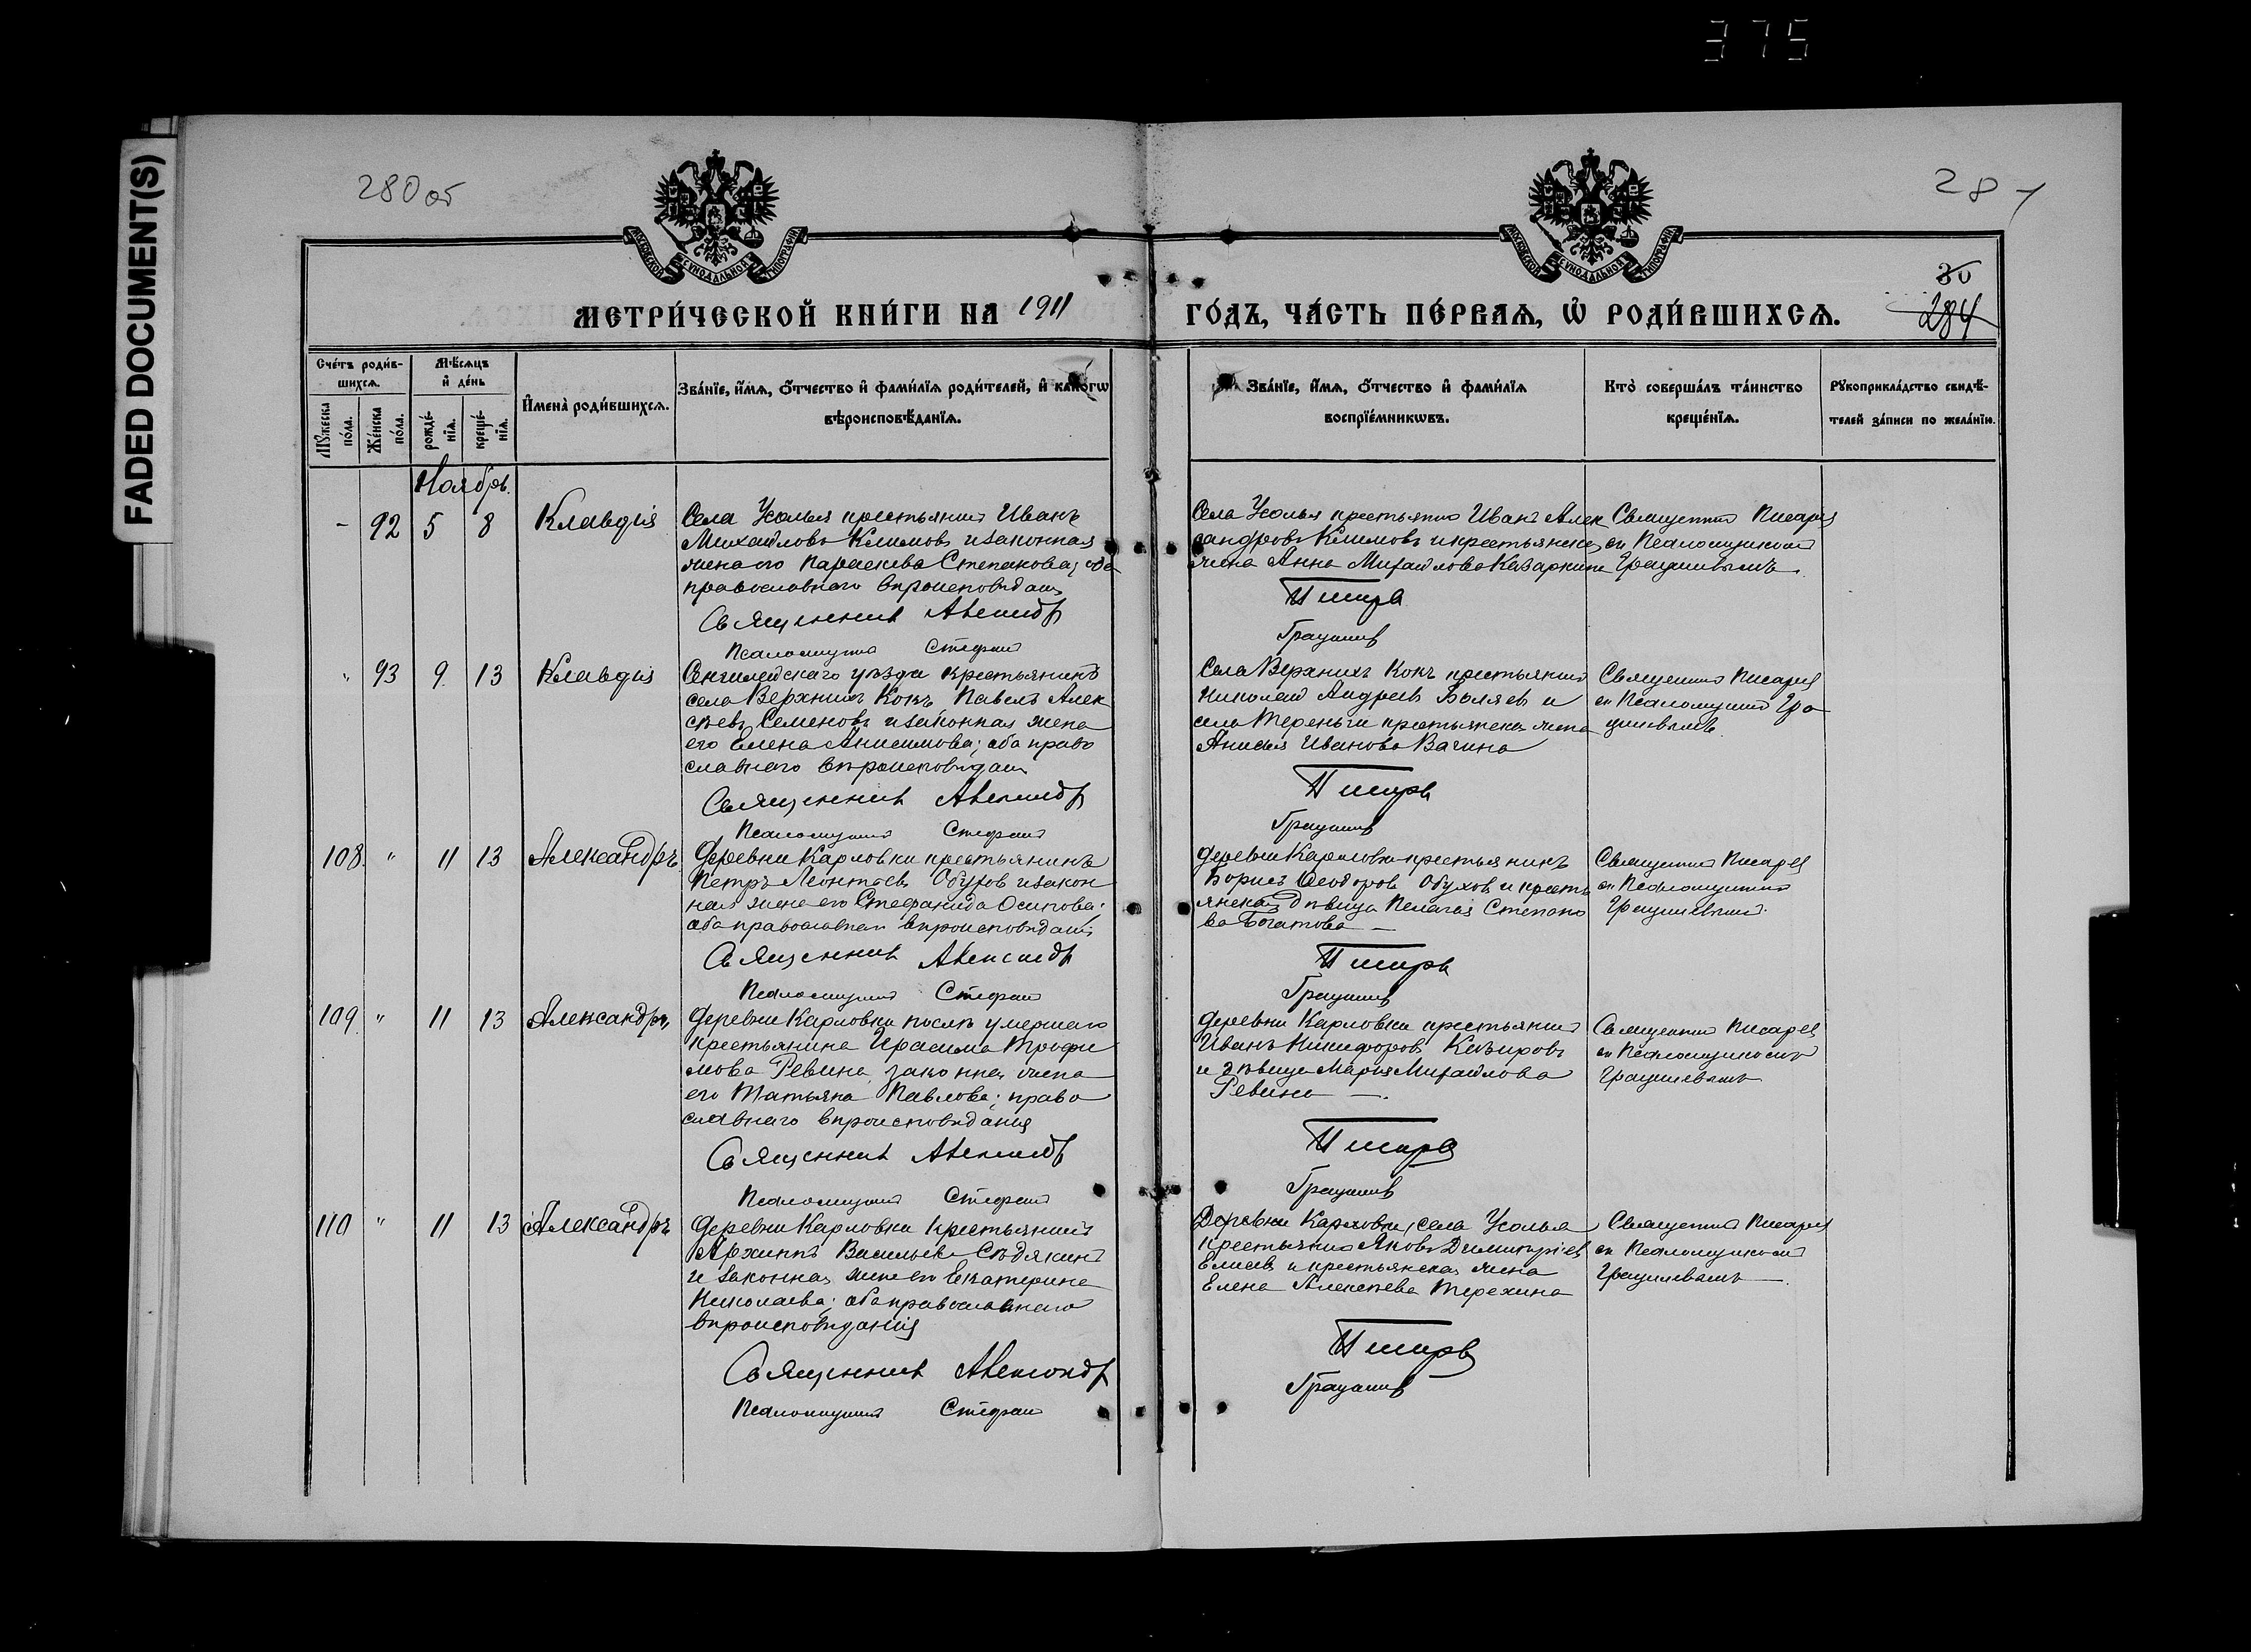 375
FADED DOCUMENT(S)
280 об
281
МОСКОВСКОЙ СѴНОДАЛЬНОЙ ТИПОГРАФІИ
МОСКОВСКОЙ СѴНОДАЛЬНОЙ ТИПОГРАФІИ
30
284
МЕТРИ́ЧЕСКОЙ КНИ́ГИ НА 1911 ГО́ДЪ, ЧА́СТЬ ПЕ́РВАѦ, Ѡ҆ РОДИ́ВШИХСѦ.
Сче́тъ роди́в-
шихсѧ.
Мѣ́сѧцъ
и҆ де́нь
Мꙋ́жеска
по́ла.
Же́нска
по́ла.
рожде́-
нїѧ.
креще́-
нїѧ.
И҆мена̀ роди́вшихсѧ.
Зва́нїе, и҆́мѧ, ѻ҆́тчество и҆ фами́лїѧ роди́телей, и҆ како́гѡ
вѣроисповѣ́данїѧ.
Зва́нїе, и҆́мѧ, ѻ҆́тчество и҆ фами́лїѧ
воспрїе́мникѡвъ.
Кто̀ соверша́лъ та́инство
креще́нїѧ.
Рꙋкоприкла́дство свидѣ́-
телей за́писи по жела́нїю.
Ноябрь.
- 92 5 8 Клавдія
Села Усолья крестьянинъ Иванъ
Михайловъ Климовъ и законная
жена его Параскева Степанова; оба
православнаго вѣроисповѣданія
Священникъ Александръ
Псаломщикъ Стефанъ
Села Усолья крестьянинъ Иванъ Алек
сандровъ Климовъ и крестьянская
жена Анна Михайлова Казаркина
Писаревъ
Грацилевъ
Священникъ Писаревъ
съ Псаломщикомъ
Грацилевымъ.
" 93 9 13 Клавдія
Сенгилейскаго уѣзда крестьянинъ
села Верхнихъ Кокъ Павелъ Алек
сѣевъ Семеновъ и законная жена
его Елена Анисимова; оба право
славнаго вѣроисповѣданія
Священникъ Александръ
Псаломщикъ Стефанъ
Села Верхнихъ Кокъ крестьянинъ
Николай Андреевъ Беляевъ и
села Тереньги крестьянская жена
Анисья Иванова Вагина
Писаревъ
Грацилевъ
Священникъ Писаревъ
съ Псаломщикомъ Гра
цилевымъ.
108. " 11 13 Александръ
Деревни Карловки крестьянинъ
Петръ Леонтьевъ Обуховъ и закон
ная жена его Стефанида Осипова;
оба православнаго вѣроисповѣданія
Священникъ Александръ
Псаломщикъ Стефанъ
Деревни Карловки крестьянинъ
Борисъ Ѳеодоровъ Обуховъ и кресть
янская дѣвица Пелагея Степано
ва Богатова —
Писаревъ
Грацилевъ
Священникъ Писаревъ
съ Псаломщикомъ
Грацилевымъ.
109. " 11 13 Александръ
Деревни Карловки послѣ умершаго
крестьянина Герасима Трофи
мова Ревина законная жена
его Татьяна Павлова; право
славнаго вѣроисповѣданія
Священникъ Александръ
Псаломщикъ Стефанъ
Деревни Карловки крестьянинъ
Иванъ Никифоровъ
и дѣвица Марія Михайлова
Ревина —.
Писаревъ
Грацилевъ
Священникъ Писаревъ
съ Псаломщикомъ
Грацилевымъ
110 " 11 13 Александръ
Деревни Карловки крестьянинъ
Архиппъ Васильевъ Сѣдякинъ
и законная жена его Екатерина
Николаева; оба православнаго
вѣроисповѣданія
Священникъ Александръ
Псаломщикъ Стефанъ
Деревни Карловки, села Усолья
крестьянинъ Яковъ Димитріевъ
Елисеевъ и крестьянская жена
Елена Алексѣева Терехина
Писаревъ
Грацилевъ
Священникъ Писаревъ
съ Псаломщикомъ
Грацилевымъ —.